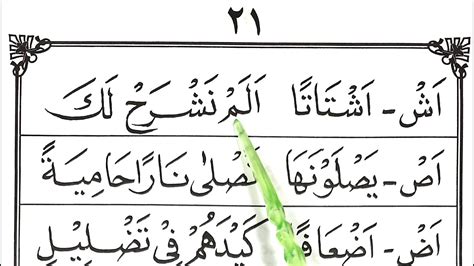 ٢١
اَشْ - اَشْتَاتًا اَلَمْ نَشْرَحْ لَكَ
اَصْ - يَصْلَوْنَهَا تَصْلٰى نَارًا حَامِيَةً
اَضْ - اَضْعَافًا كَيْدَهُمْ فِيْ تَضْلِيْلٍ